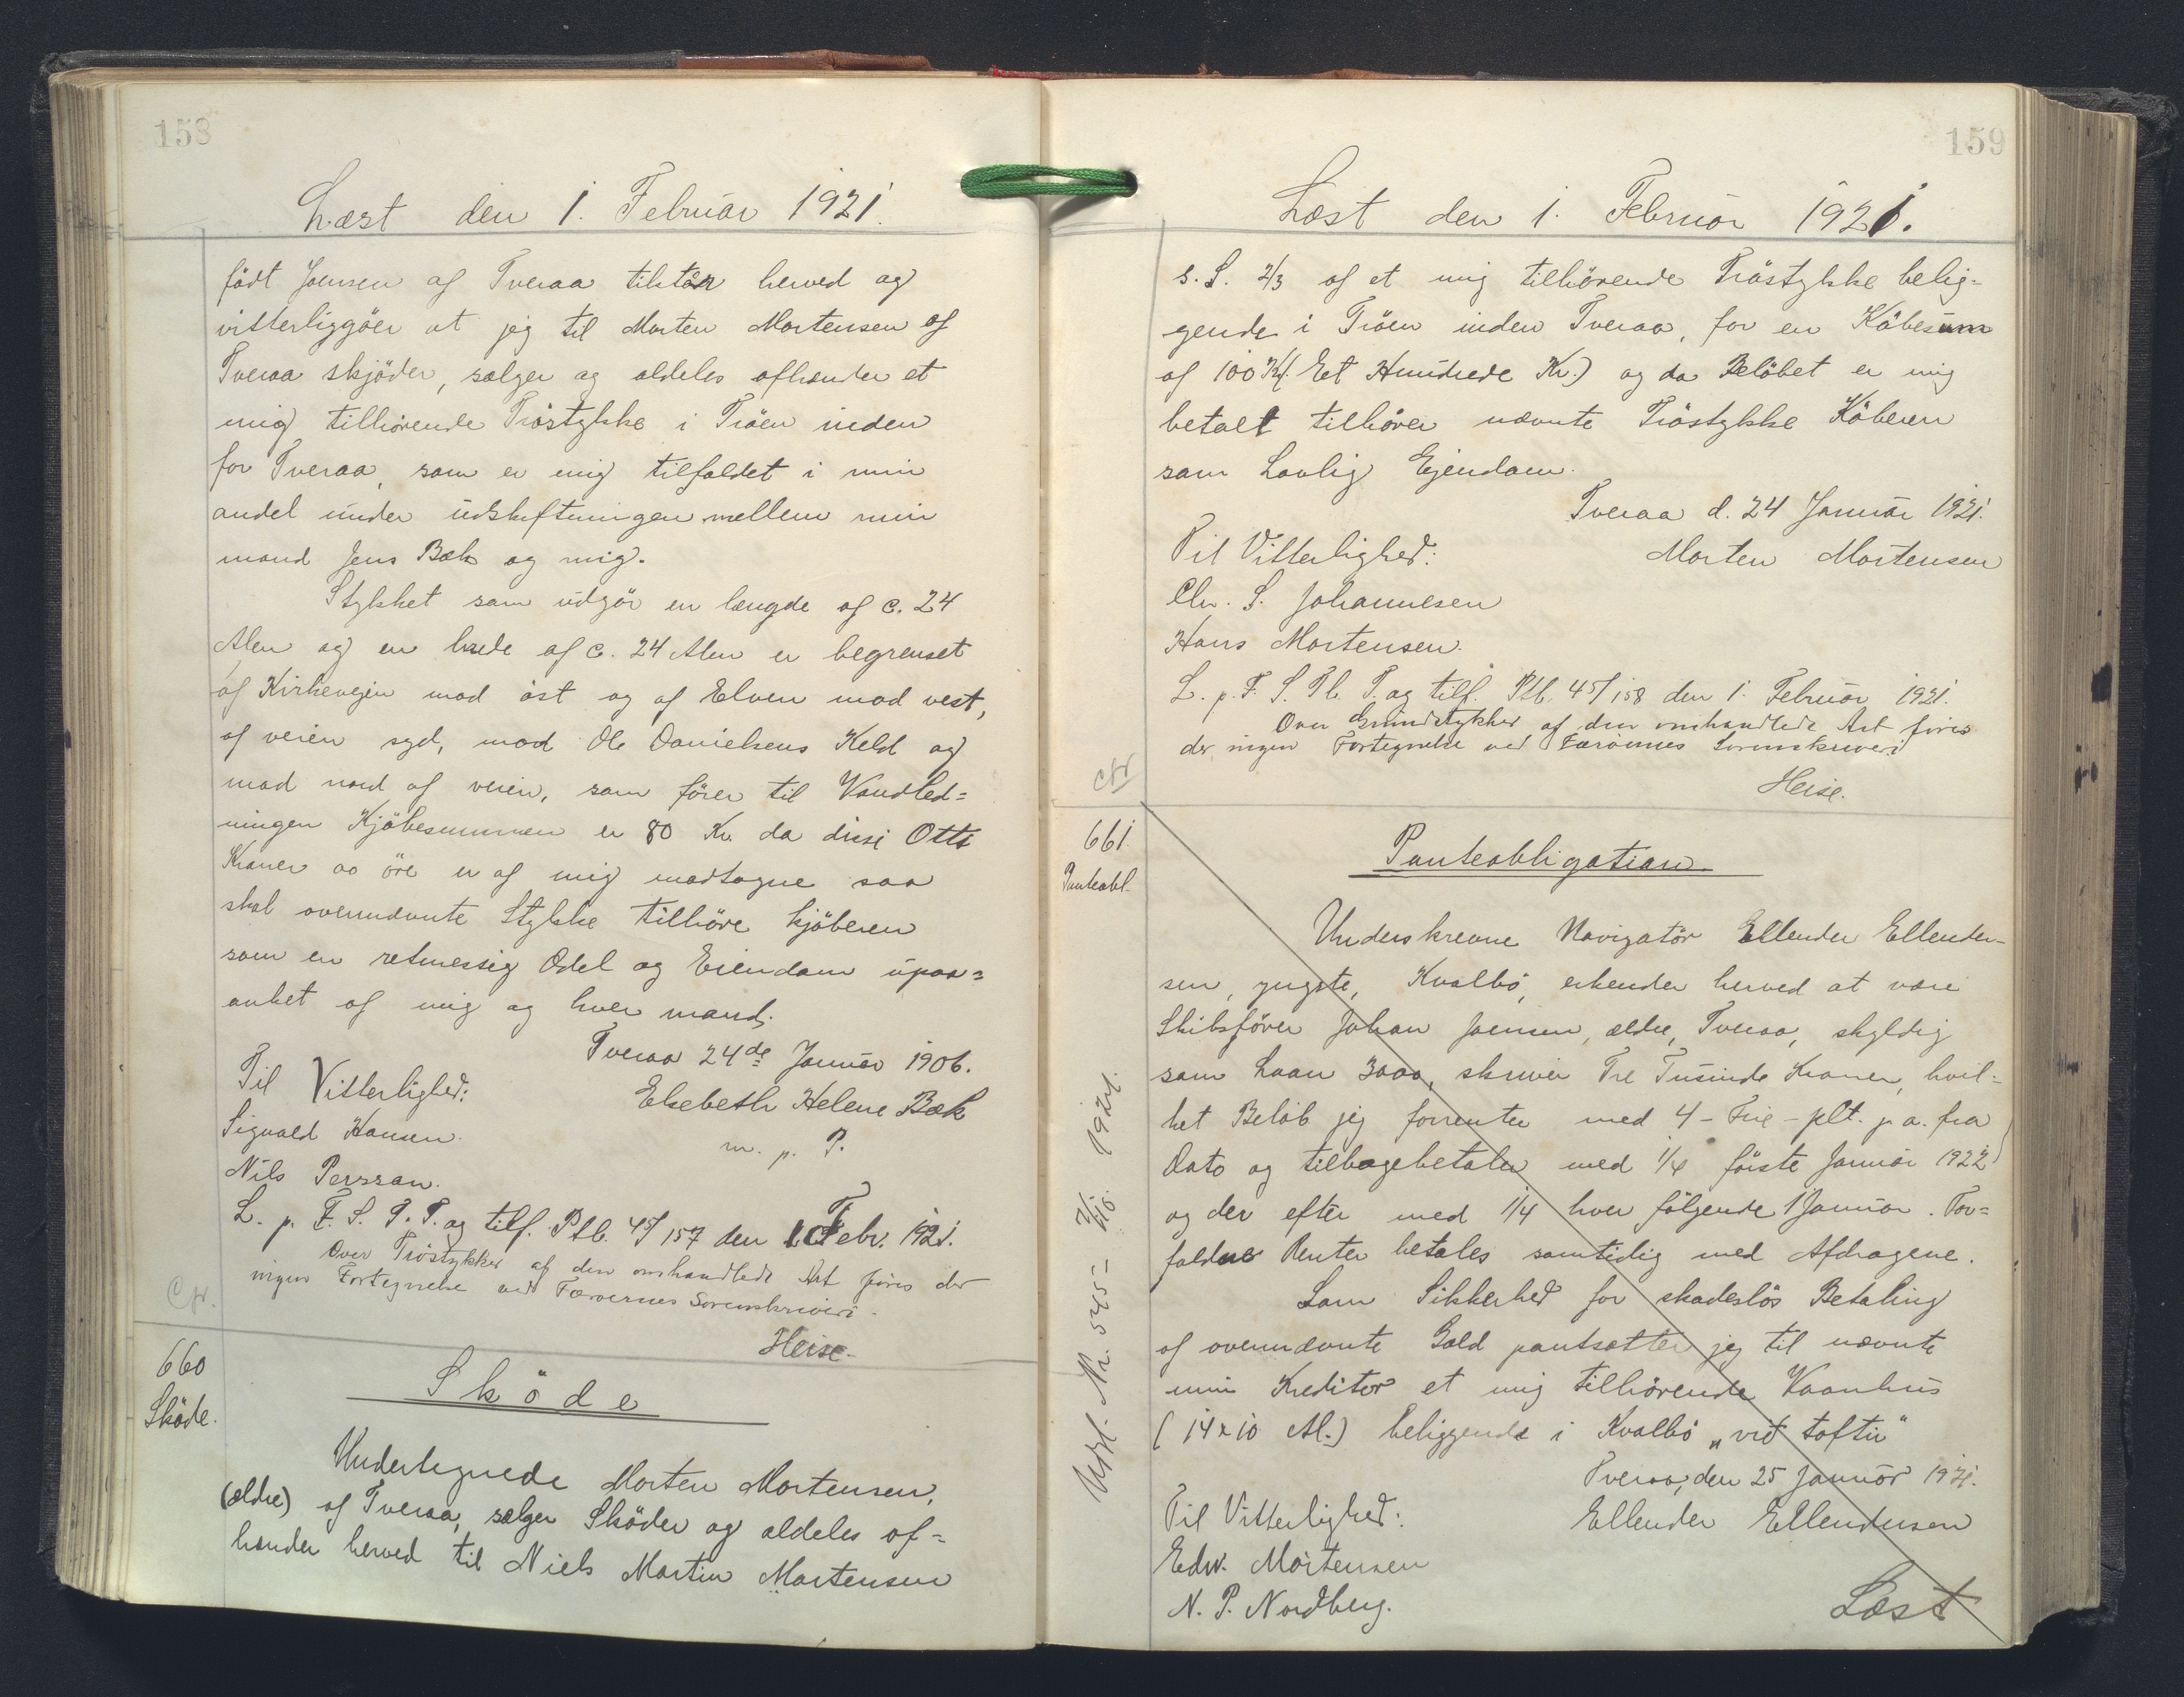 158
Læst den 1. Februar 1921.
født Joensen af Tveraa tilstår herved og
vitterliggöer at jeg til Morten Mortensen af
Tveraa skjöder, sælger og aldeles afhænder et
mig tilhörende Tröstykke i Tröen inden
for Tveraa, som er mig tilfaldet i min
andel under udskiftningen mellem min
mand Jens Bæk og mig.
Stykket som udgör en længde af c. 24
Alen og en brede af c. 24 Alen er begrenset
af Kirkevejen mod öst og af Elven mod vest,
af veien syd, mod Ole Danielsens Keld og
mod nord af veien, som förer til Vandled=
ningen Kjöbesummen er 80 Kr. da disse Otti
Kroner oo öre er af mig modtagne saa
skal ovennævnte Stykke tilhöre kjöberen
som en retmessig Odel og Eiendom upaa=
anket af mig og hver mand.
Tveraa 24de Januar 1906.
Til Vitterlighed: Elsebeth Helene Bæk
Sigvald Hansen. m. p. P.
Nils Persson.
L. p. F. S. T. T. og tilf. Ptb. 45/157 den 1. Febr. 1921.
Over Tröstykker af den omhandlede Art föres der
ingen Fortegnelse ved Færøernes Sorenskriveri.
Cfr.
Heise.
660
Sköde.
Sköde
Undertegnede Morten Mortensen,
(ældre) af Tveraa, sælger Sköder og aldeles af=
hænder herved til Niels Martin Mortensen
159
Læst den 1. Februar 1921.
s. S. 2/3 af et mig tilhörende Tröstykke belig=
gende i Tröen inden Tveraa, for en Köbesum
af 100 Kr. (Et Hundrede Kr.) og da Belöbet er mig
betalt tilhörer nævnte Tröstykke Köberen
som Lovlig Ejendom.
Tveraa d. 24 Januar 1921.
Til Vitterlighed: Morten Mortensen
Chr. S. Johannesen
Hans Mortensen.
L. p. F. S. Tb. T. og tilf. Ptb. 45/158 den 1. Februar 1921.
Over Grundstykker af den omhandlede Art föres
der ingen Fortegnelse ved Færöernes Sorenskriveri
Cfr
Heise.
661
Panteobl.
Panteobligation.
Underskrevne Navigatör Ellender Ellender-
sen, yngste, Kvalbö, erkender herved at være
Skibsförer Johan Joensen, ældre, Tveraa, skyldig
som Laan 3000, skriver Tre Tusinde Kroner, hvil=
ket Belöb jeg forrenter med 4 - Fire - pCt. p. a. fra
Dato og tilbagebetaler med 1/4 förste Januar 1922
og der efter med 1/4 hver fölgende 1 Januar. For=
faldne Renter betales samtidig med Afdragene.
Som Sikkerhed for skadeslös Betaling
af ovennævnte Gæld pantsætter jeg til nævnte
min Kreditor et mig tilhörende Vaanhus
(14 x 10 Al.) beliggende i Kvalbö „við toftir"
Tveraa, den 25 Januar 1921.
Til Vitterlighed: Ellender Ellendersen
Edw. Mortensen
N. P. Nordberg.
Læst
Udsl. Nr. 545- 1924.